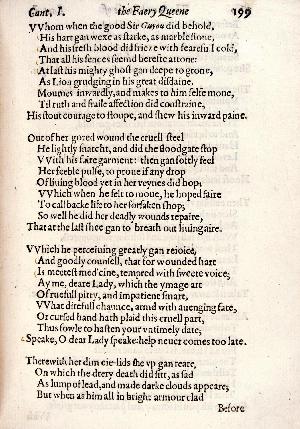 Cant. I. the Faery Queene 199
VVhom when the good Sir Guyon did behold,
His hart gan wexe as starke, as marble stone,
And his fresh blood did frieze with fearefull cold,
That all his sences seemd bereft attone:
At last his mighty ghost gan deepe to grone,
As Lion grudging in his great disdaine,
Mournes inwardly, and makes to him selfe mone,
Til ruth and fraile affection did constraine,
His stout courage to stoupe, and shew his inward paine.
Out of her gored wound the cruell steel
He lightly snatcht, and did the floodgate stop
VVith his faire garment: then gan softly feel
Her feeble pulse, to proue if any drop
Of liuing blood yet in her veynes did hop;
VVhich when he felt to moue, he hoped faire
To call backe life to her forsaken shop;
So well he did her deadly wounds repaire,
That at the last shee gan to breath out liuing aire.
VVhich he perceiuing greatly gan reioice,
And goodly counsell, that for wounded hart
Is meetest med'cine, tempred with sweete voice;
Ay me, deare Lady, which the ymage art
Of ruefull pitty, and impatient smart,
VVhat direfull chaunce, armd with auenging fate,
Or cursed hand hath plaid this cruell part,
Thus fowle to hasten your vntimely date;
Speake, O dear Lady speake: help neuer comes too late.
Therewith her dim eie-lids she vp gan reare,
On which the drery death did sitt, as sad
As lump of lead, and made darke clouds appeare;
But when as him all in bright armour clad
Before